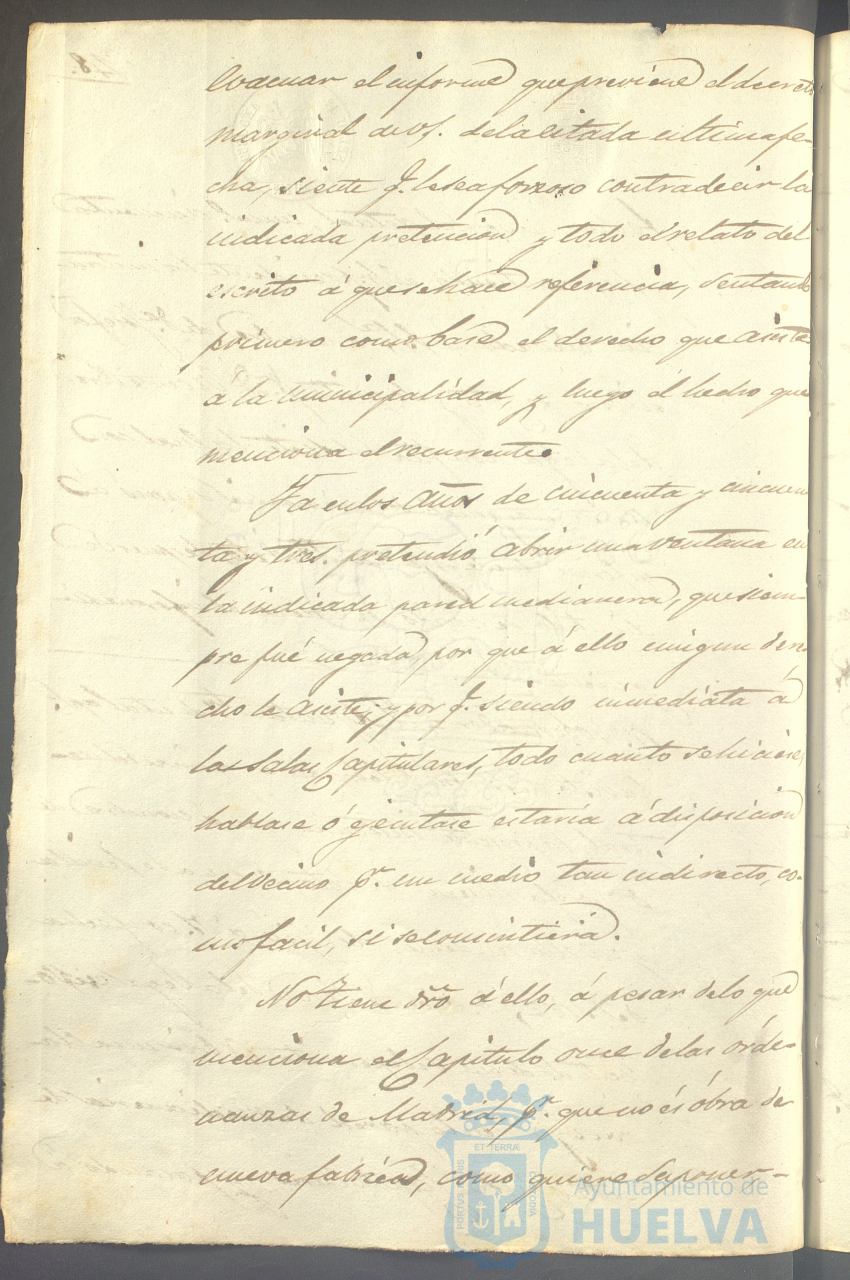 evacuar el informe que previene el decreto
marginal de VS. de la citada ultima fe-
cha, siente q. le sea forzoso contradecir la
indicada pretencion y todo el relato del
escrito á que se hace referencia, sentando
primero como base el derecho que asiste
á la municipalidad, y luego el hecho que
menciona el recurrente.
Ya en los años de cincuenta y cincuen
ta y tres. pretendió abrir una ventana en
la indicada pared medianera, que siem-
pre fué negada, por que á ello ningun dere
cho le asiste, y por q. siendo inmediata á
las Salas Capitulares, todo cuanto se hiciese,
hablase ó ejecutase estaria á disposicion
del vecino pr. un medio tan indirecto, co-
mo facil, si se consintiera.
No tiene dro á ello, á pesar de lo que
menciona el Capitulo once de las órde-
nanzas de Madrid, pr. que no és óbra de
nueva fabrica, como quiere suponer-
ET TERRÆ
PORTUS
CUSTODIA
Ayuntamiento de
HUELVA